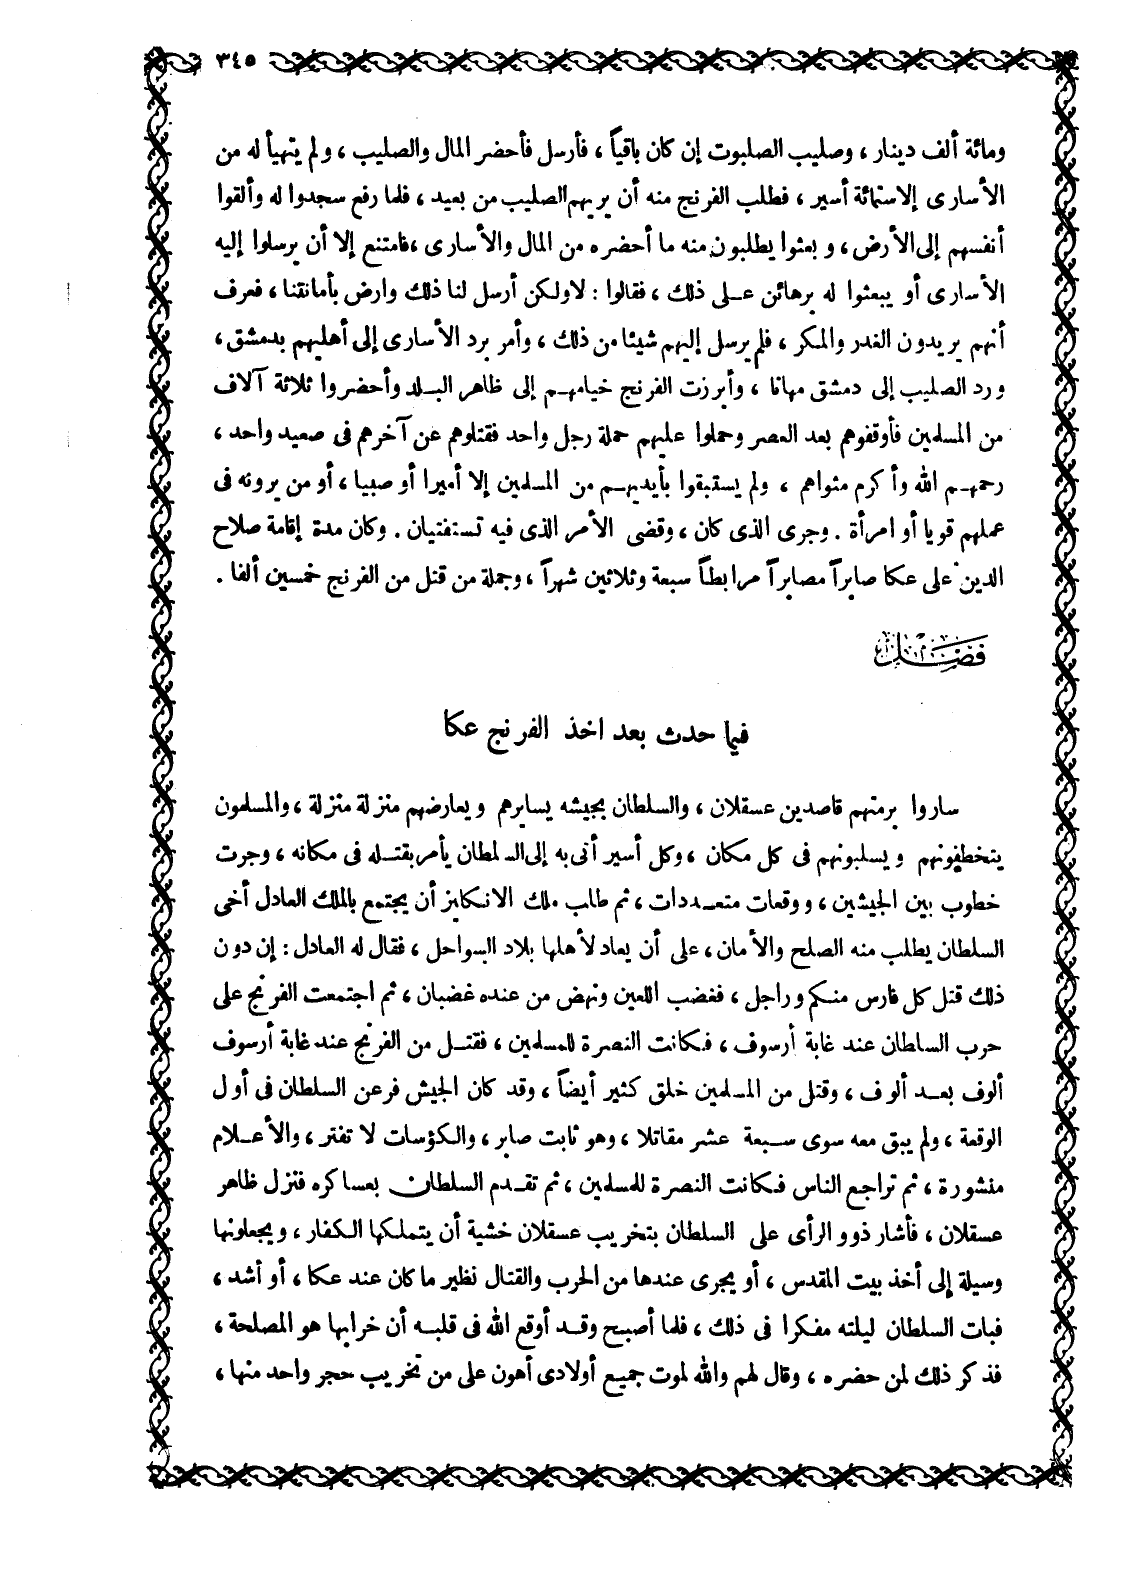 ٣٤٥
ومائة ألف دينار ، وصليب الصلبوت إن كان باقياً ، فأرسل فأحضر المال والصليب ، ولم يتهيأ له من
الأسارى إلا ستمائة أسير ، فطلب الفرنج منه أن يريهم الصليب من بعيد ، فلما رفع سجدوا له وألقوا
أنفسهم إلى الأرض ، وبعثوا يطلبون منه ما أحضره من المال والأسارى ، فامتنع إلا أن يرسلوا إليه
الأسارى أو يبعثوا له برهائن على ذلك ، فقالوا : لا ولكن أرسل لنا ذلك وارض بأمانتنا ، فعرف
أنهم يريدون الغدر والمكر ، فلم يرسل إليهم شيئا من ذلك ، وأمر برد الأسارى إلى أهليهم بدمشق ،
ورد الصليب إلى دمشق مهانا ، وأبرزت الفرنج خيامهم إلى ظاهر البلد وأحضروا ثلاثة آلاف
من المسلمين فأوقفوهم بعد العصر وحملوا عليهم حملة رجل واحد فقتلوهم عن آخرهم فى صعيد واحد ،
رحمهم الله وأكرم مثواهم ، ولم يستبقوا بأيديهم من المسلمين إلا أميرا أو صبيا ، أو من يرونه فى
عملهم قويا أو امرأة . وجرى الذى كان ، وقضى الأمر الذى فيه تستفتيان . وكان مدة إقامة صلاح
الدين على عكا صابراً مصابراً مرابطاً سبعة وثلاثين شهراً ، وجملة من قتل من الفرنج خمسين ألفا .
فصل
فيما حدث بعد اخذ الفرنج عكا
ساروا برمتهم قاصدين عسقلان ، والسلطان بجيشه يسايرهم ويعارضهم منزلة منزلة ، والمسلمون
يتخطفونهم ويسلبونهم فى كل مكان ، وكل أسير أتى به إلى السلطان يأمر بقتله فى مكانه ، وجرت
خطوب بين الجيشين ، ووقعات متعددات ، ثم طلب ملك الانكليز أن يجتمع بالملك العادل أخى
السلطان يطلب منه الصلح والأمان ، على أن يعاد لأهلها بلاد السواحل ، فقال له العادل : إن دون
ذلك قتل كل فارس منكم وراجل ، فغضب اللعين ونهض من عنده غضبان ، ثم اجتمعت الفرنج على
حرب السلطان عند غابة أرسوف ، فكانت النصرة للمسلمين ، فقتل من الفرنج عند غابة أرسوف
ألوف بعد ألوف ، وقتل من المسلمين خلق كثير أيضاً ، وقد كان الجيش فر عن السلطان فى أول
الوقعة ، ولم يبق معه سوى سبعة عشر مقاتلا ، وهو ثابت صابر ، والكؤسات لا تفتر ، والأعلام
منشورة ، ثم تراجع الناس فكانت النصرة للمسلمين ، ثم تقدم السلطان بعساكره فنزل ظاهر
عسقلان ، فأشار ذوو الرأى على السلطان بتخريب عسقلان خشية أن يتملكها الكفار ، ويجعلونها
وسيلة إلى أخذ بيت المقدس ، أو يجرى عندها من الحرب والقتال نظير ما كان عند عكا ، أو أشد ،
فبات السلطان ليلته مفكرا فى ذلك ، فلما أصبح وقد أوقع الله فى قلبه أن خرابها هو المصلحة ،
فذكر ذلك لمن حضره ، وقال لهم والله لموت جميع أولادى أهون على من تخريب حجر واحد منها ،